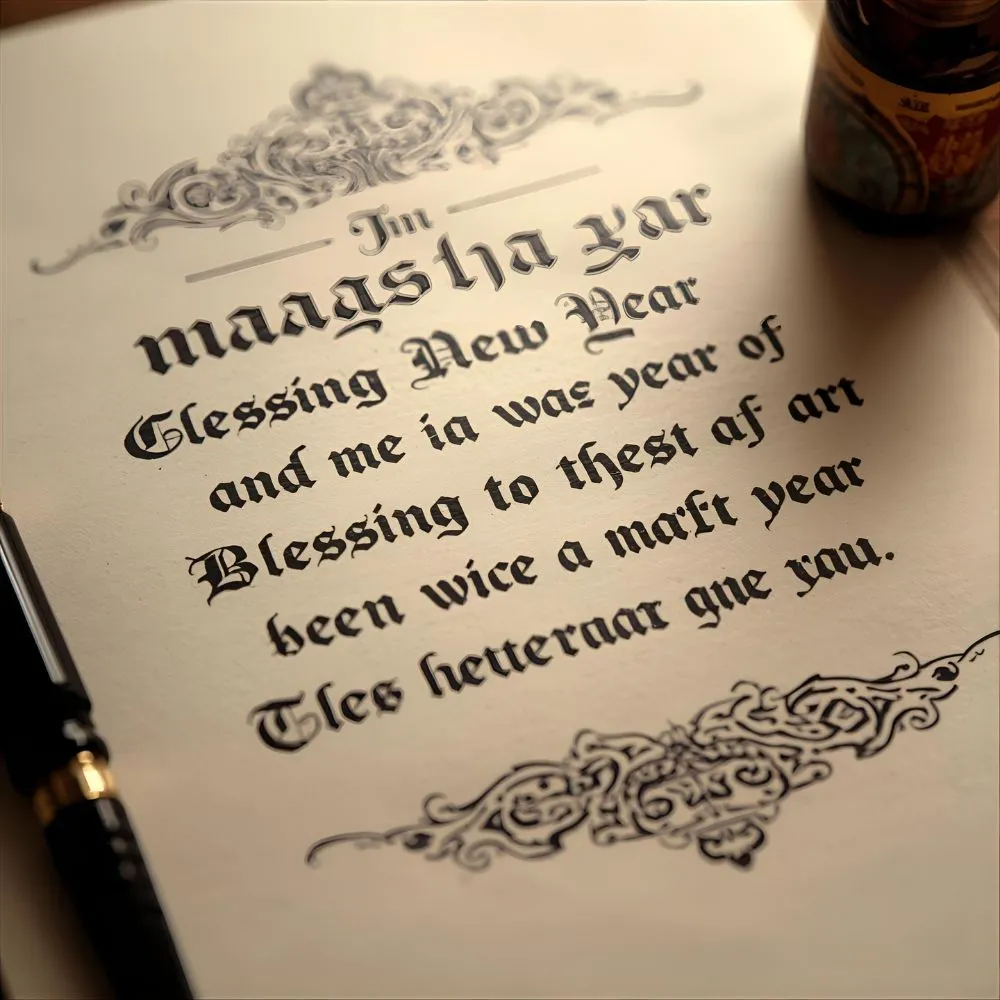 Im
maagstha yar
Clessing New Year
and me ia was year of
Blessing to thest af art
been wice a ma'ft year
Tles hetternaar gne yau.